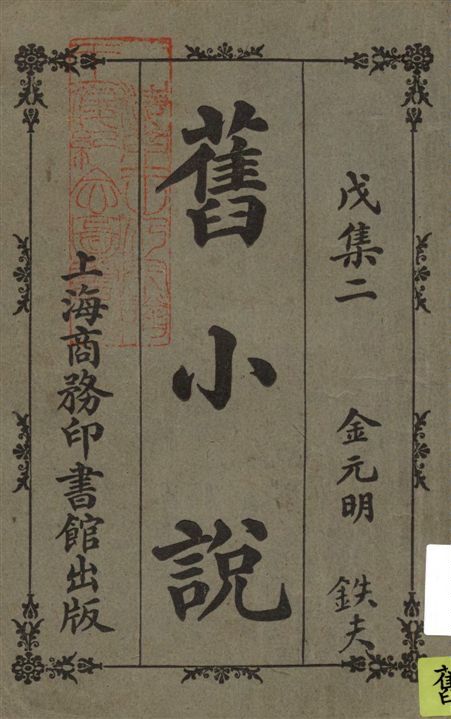 戊集二 金元明 鉄夫
舊小說
上海商務印書館出版
舊